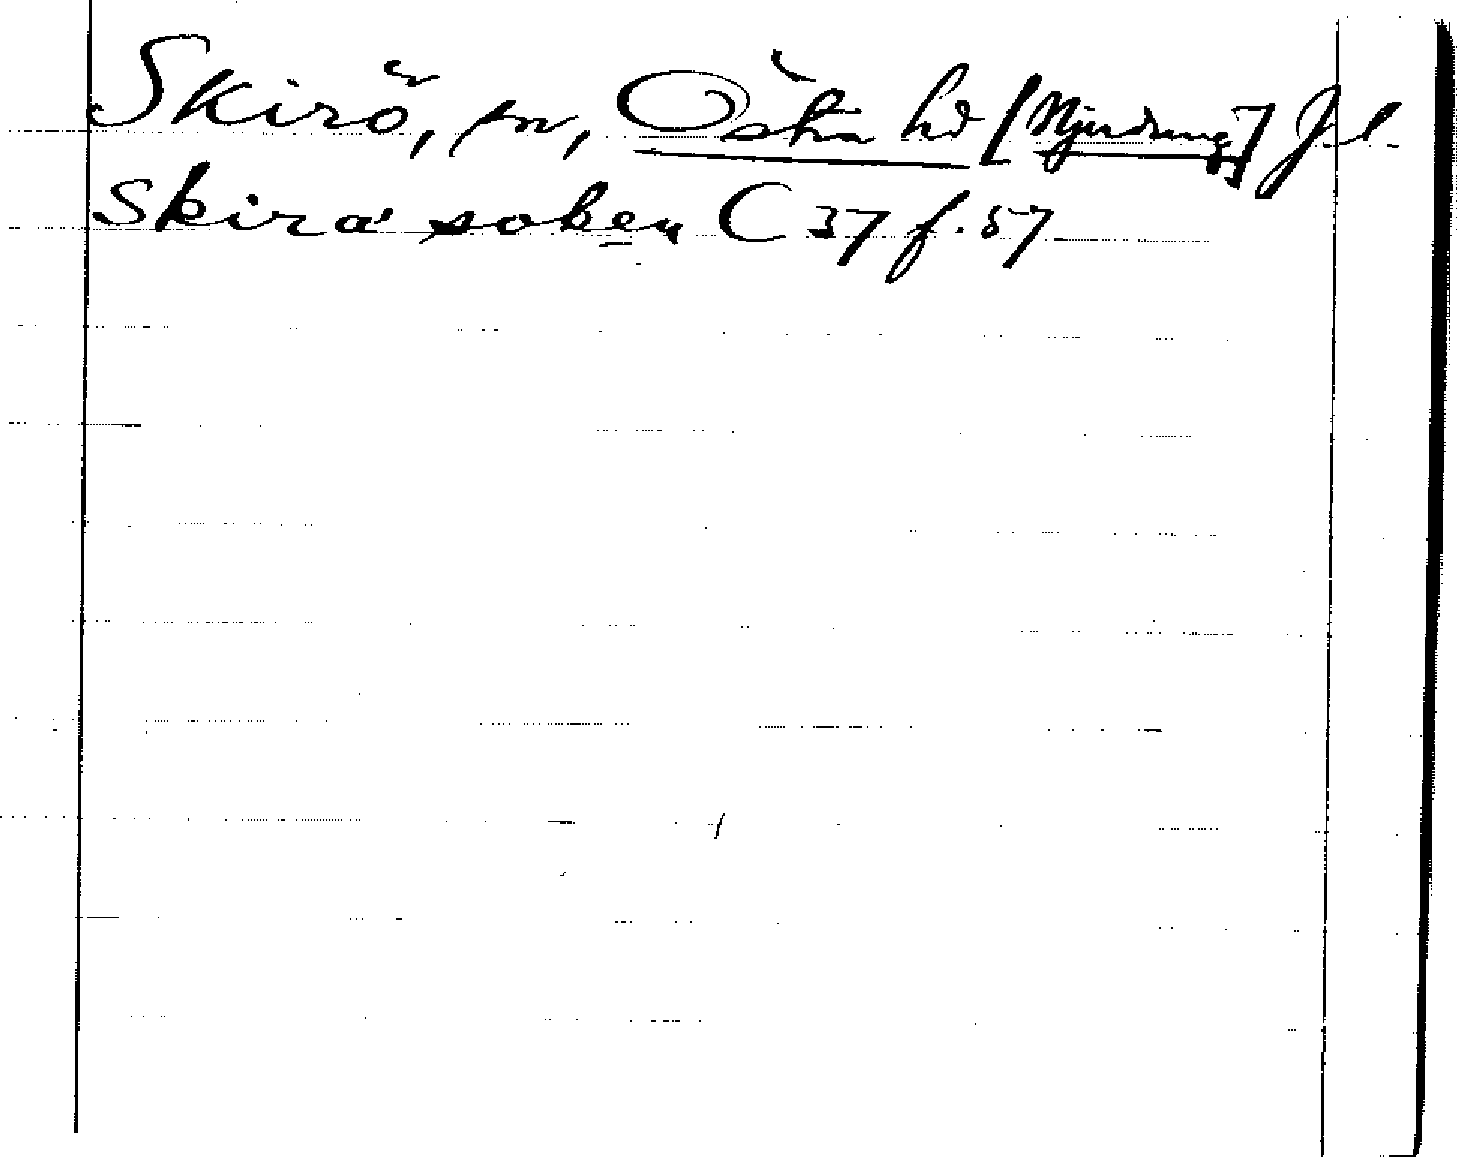 Skirö, sn, Östra hd [Njudung] Jl
Skira soken C 37 f. 57